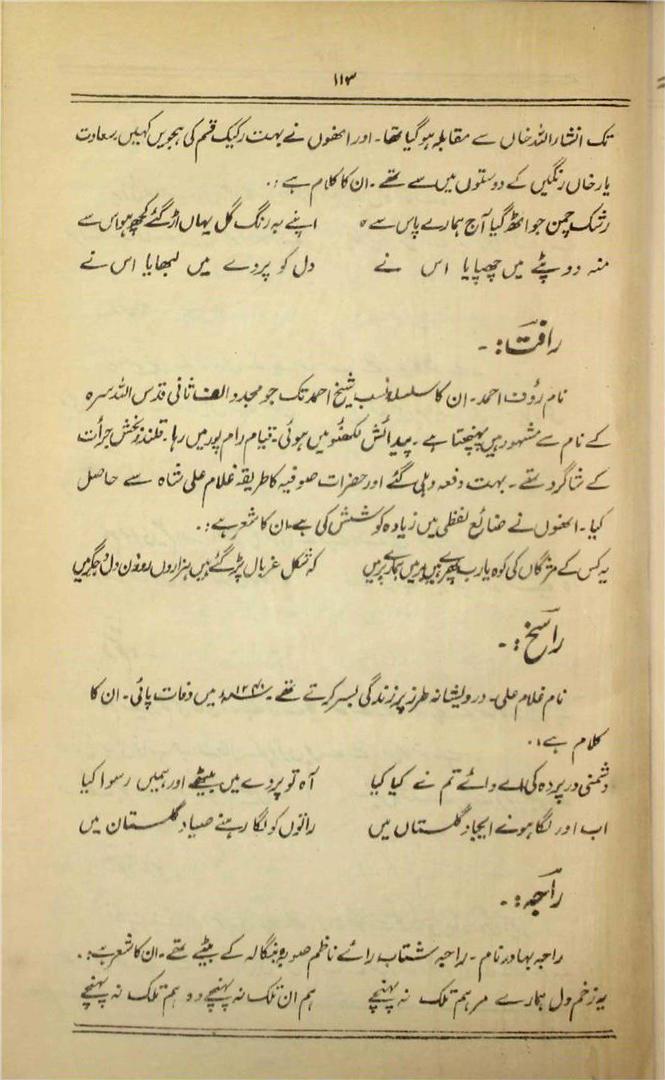 ۱۱۳
تک انشاراللہ خاں سے مقابلہ ہوگیا تھا۔ اور انھوں نے بہت رکیک قسم کی ہجویں کہیں۔ سعادت
یار خاں رنگیں کے دوستوں میں سے تھے۔ ان کا کلام ہے :.
رشک چمن جو اٹھ گیا آج ہمارے پاس سے ٥ اپنے بہ رنگ گل یہاں اڑ گئے کچھ ہواس سے
منہ دوپٹے میں چھپایا اس نے دل کو پردے میں لبھایا اس نے
رافت:۔
نام رؤف احمد۔ ان کا سلسلہ نسب شیخ احمد تک جو مجدد الف ثانی قدس اللہ سرہ
کے نام سے مشہور ہیں پہنچتا ہے۔ پیدائش لکھنؤ میں ہوئی۔ قیام رام پور میں رہا۔ قلندر بخش جرأت
کے شاگرد تھے۔ بہت دفعہ دہلی گئے اور حضرات صوفیہ کا طریقہ غلام علی شاہ سے حاصل
کیا۔ انھوں نے ضائع لفظی میں زیادہ کوشش کی ہے۔ ان کا شعر ہے:.
یہ کس کے مژگاں کی کوہ یارب ہمارے بر میں کہ شکل غربال پڑ گئے ہیں ہزاروں روزن دل و جگر میں
راسخ:۔
نام غلام علی۔ درویشانہ طرز پر زندگی بسر کرتے تھے۔ ۱۲۴۰ھ میں وفات پائی۔ ان کا
کلام ہے:.
دشمنی در پردہ کی اے وائے تم نے کیا کیا آہ تو پردے میں بیٹھے اور ہمیں رسوا کیا
اب اور لگا ہونے ایجاد گلستاں میں راتوں کو لگا رہنے صیاد گلستان میں
راجہ:۔
راجہ بہادر نام۔ راجہ شتاب رائے ناظم صوبہ بنگالہ کے بیٹے تھے۔ ان کا شعر ہے:.
یہ زخم دل ہمارے مرہم تلک نہ پہنچے ہم ان تلک نہ پہنچے وو ہم تلک نہ پہنچے